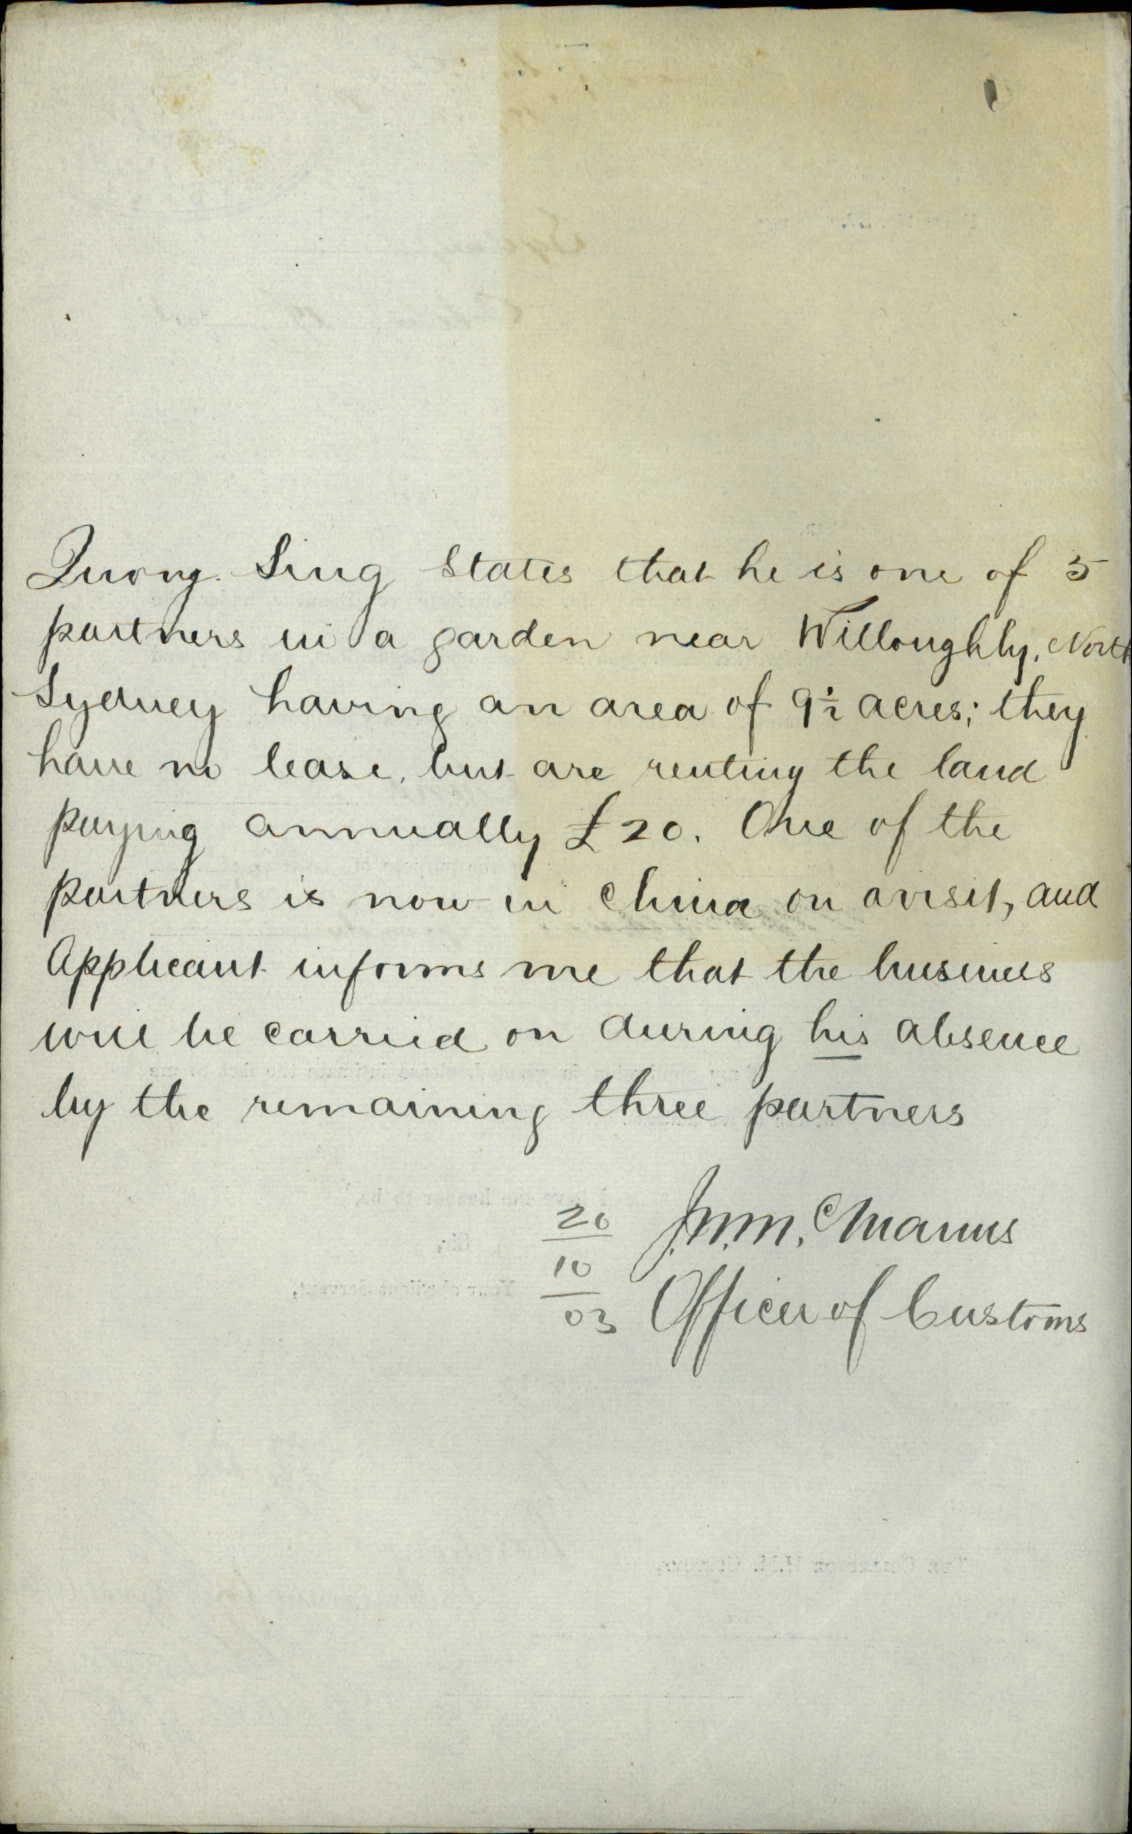 Quong Sing states that he is one of 5
partners in a garden near Willoughby, North
Sydney having an area of 9½ acres; they
have no lease, but are renting the land
paying annually £20. One of the
partners is now in China on a visit, and
Applicant informs me that the business
will be carried on during his absence
by the remaining three partners
20 J.W.M. McManus
10
03 Officer of Customs